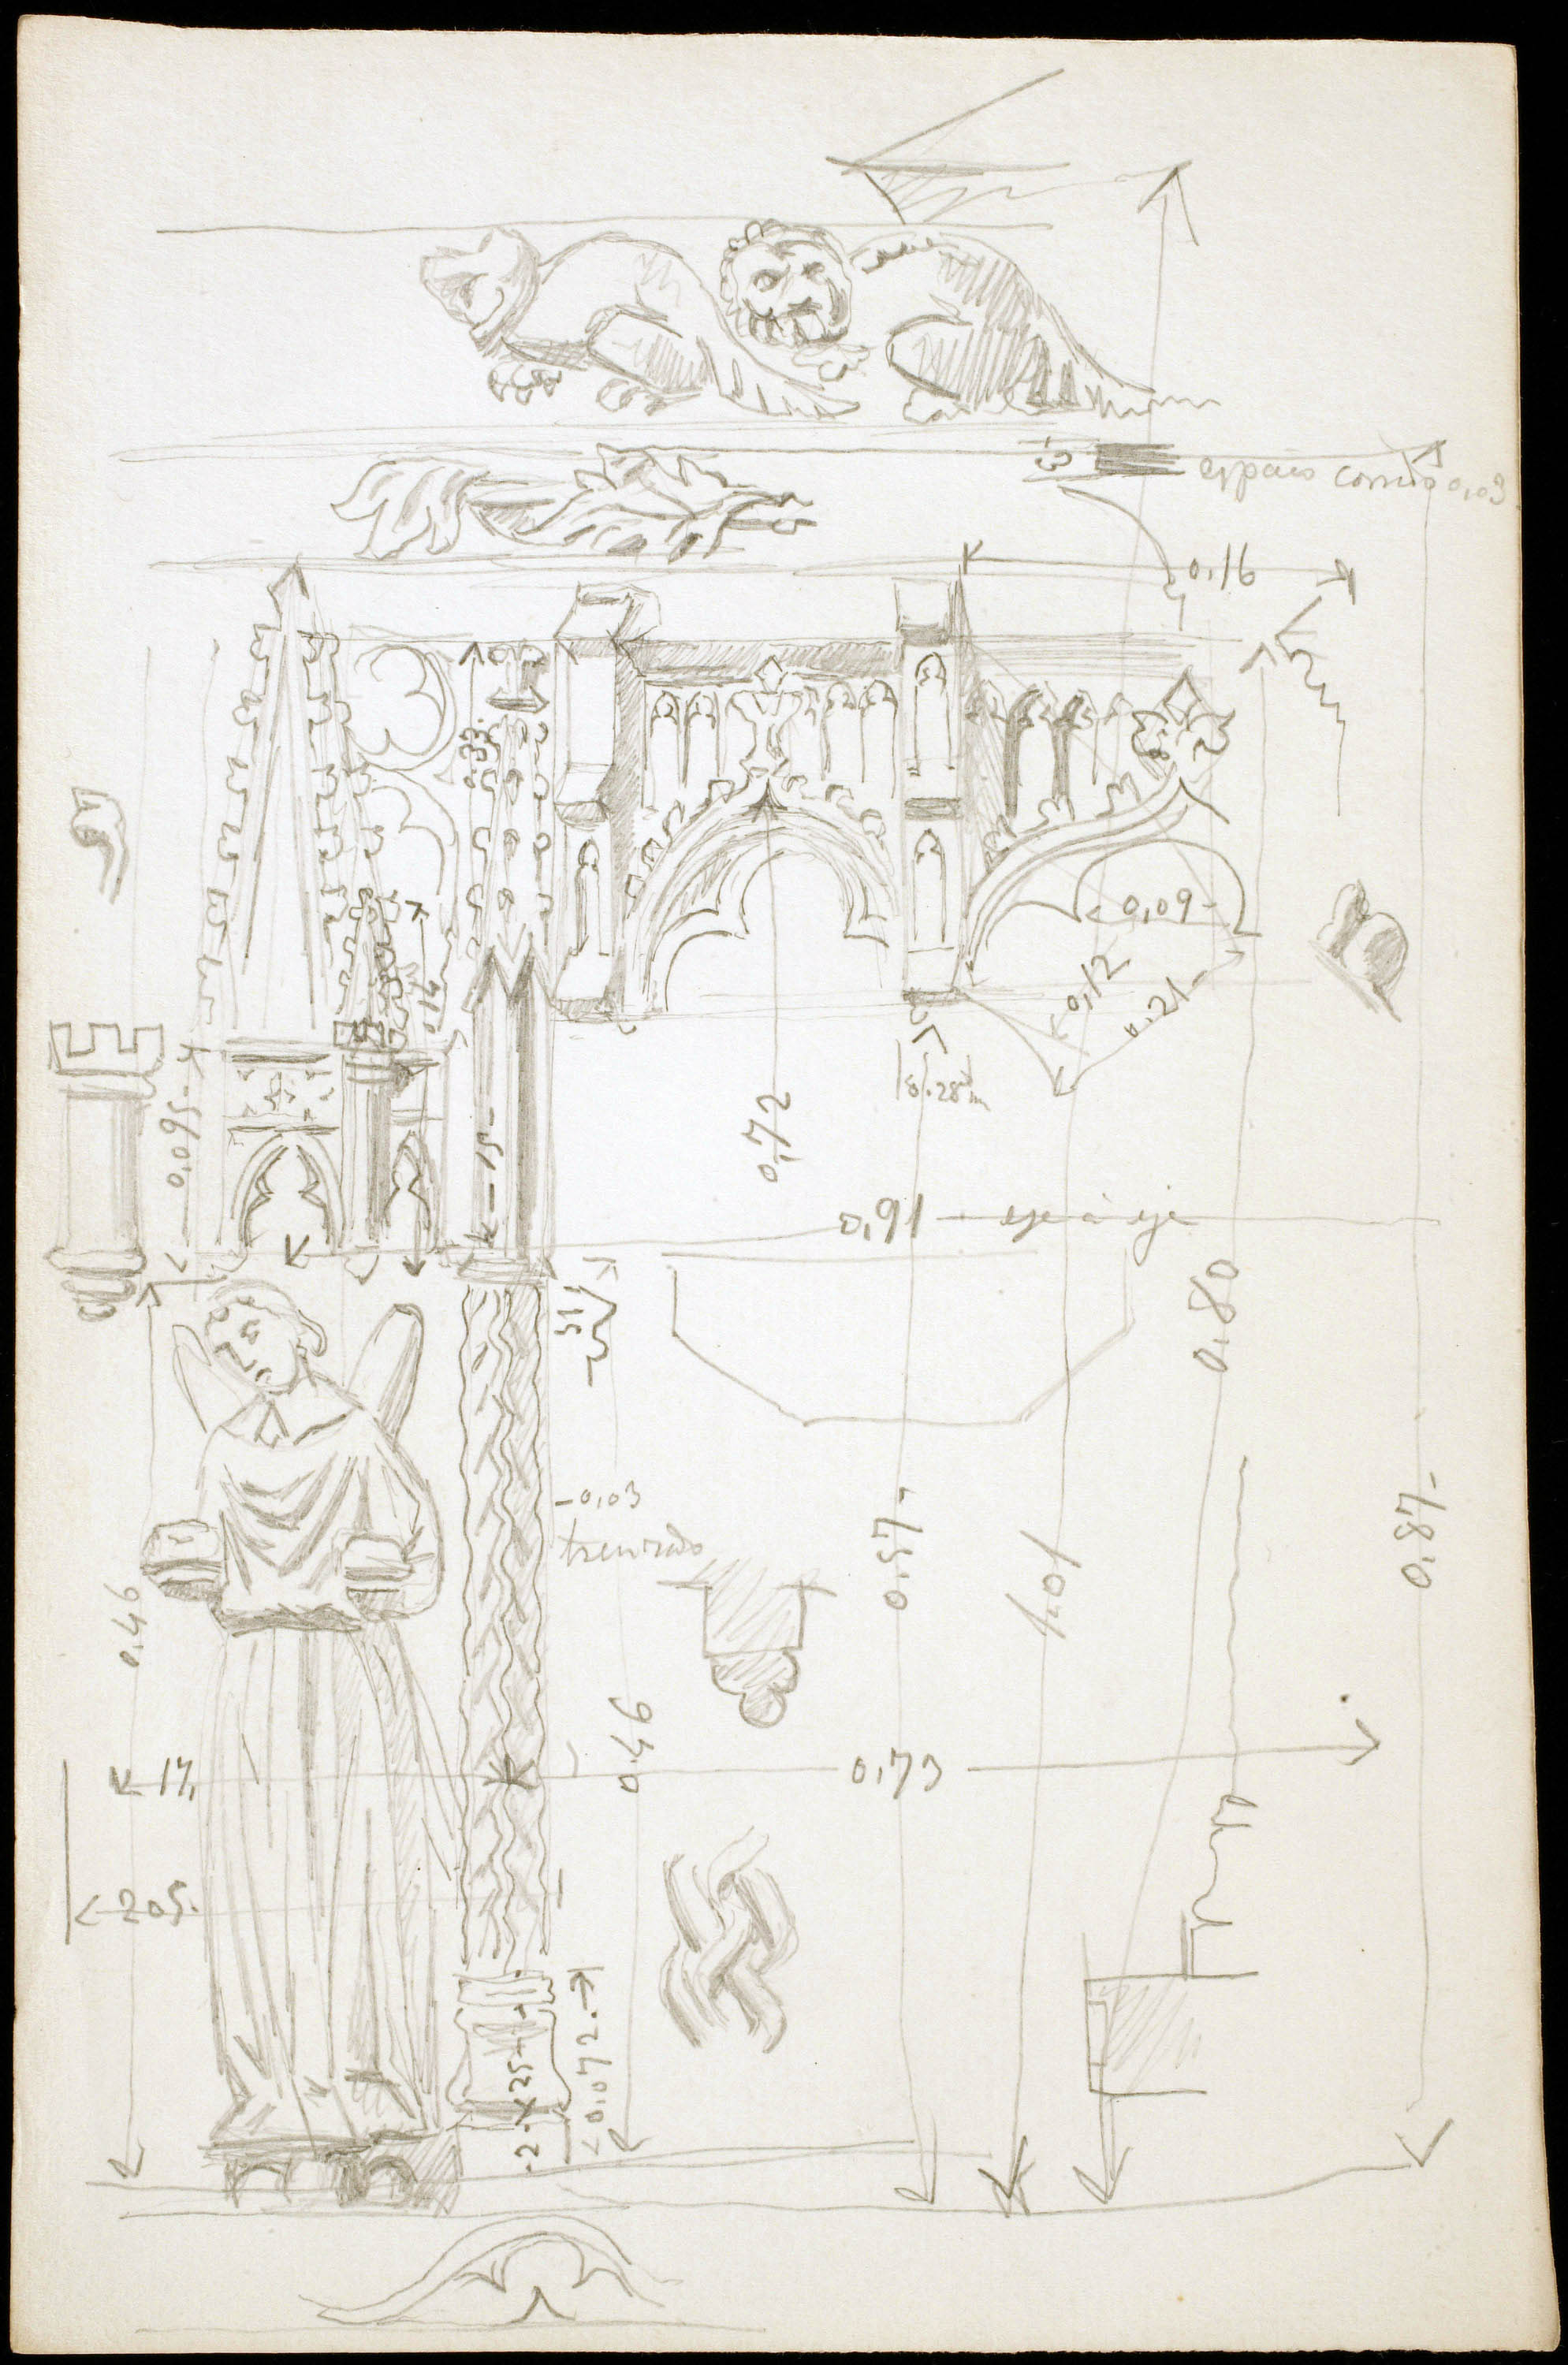 13
espacio corrido 0,03
0,16
33
0,14
0,09
0,12
0,21
0,095
15
0,72
0,91 — eje á eje
0,80
-0,03
trenzado
0,57
1,01
0,87-
0,46
0,46
17,
0,73
205.
25
0,072.
2